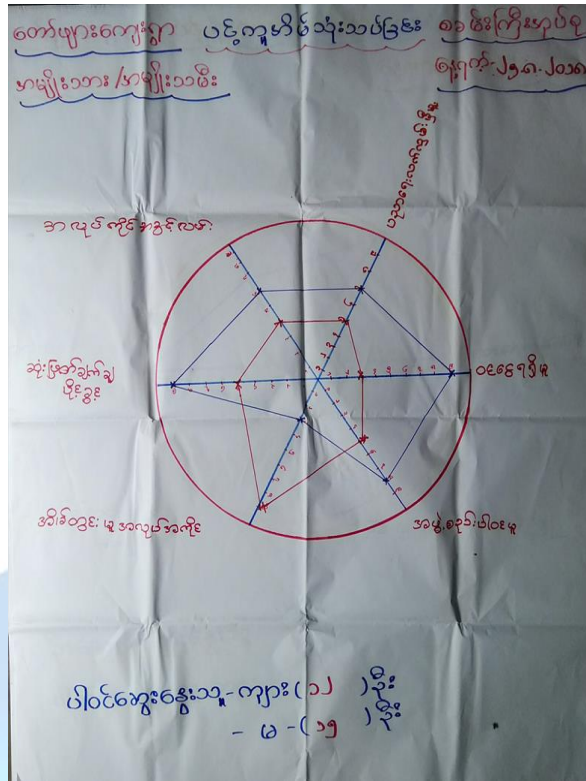 တော်ဖျားကျေးရွာ ပင့်ကူအိမ်သုံးသပ်ခြင်း စခမ်းကြီးအုပ်စု
အမျိုးသား/အမျိုးသမီး နေ့ရက်-၂၅.၈.၂၀၁၈
အလုပ်ကိုင်အခွင့်လမ်း
ဆုံးဖြတ်ချက်ချ
ပိုင်ခွင့်
ဝင်ငွေရရှိမှု
အိမ်တွင်းမှုအလုပ်အကိုင်
အဖွဲ့စည်းပါဝင်မှု
ပါဝင်ဆွေးနွေးသူ-ကျား(၁၂)ဦး
- မ -(၁၅)ဦး